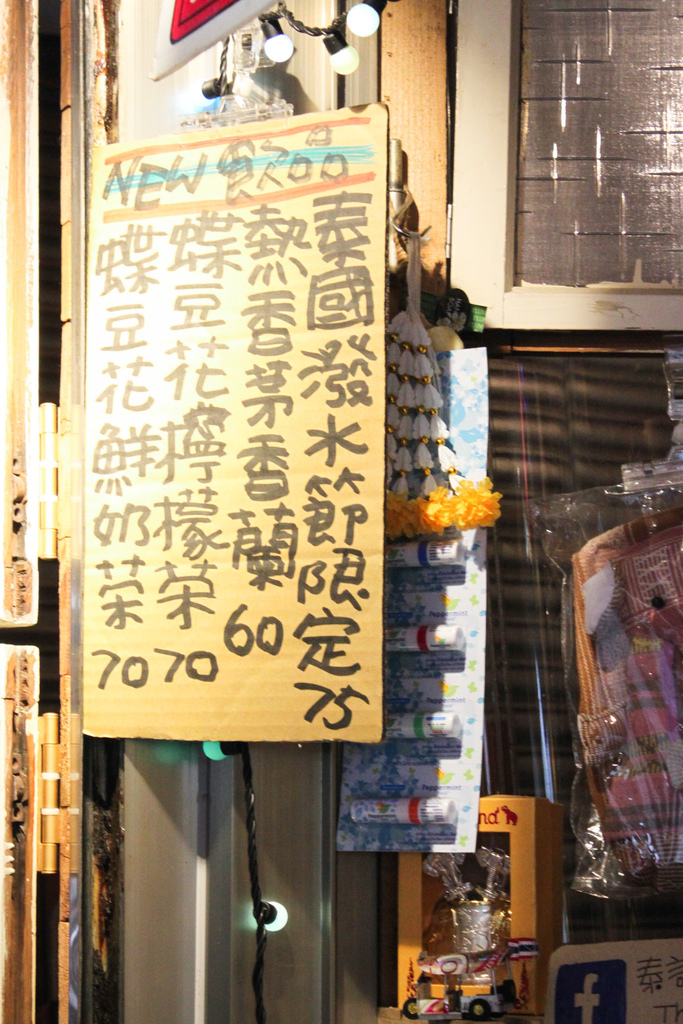 NEW 飲品
泰國潑水節限定 75
熱香茅香蘭 60
蝶豆花檸檬茶 70
蝶豆花鮮奶茶 70
Peppermint
Peppermint
Peppermint
f
泰
Th